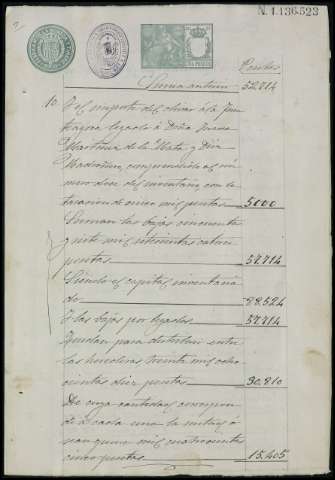 N.1.136.523
Pesetas
Suma anterior 52,714
10. Y el importe del olivar á la
legado á Doña
Martinez de la Mata y Diaz
Madroñero, comprendido al nú-
mero doce del inventario con la
tasacion de cinco mil pesetas 5000
Suman las bajas cincuenta
y siete mil setecientas catorce
pesetas 57,714
Siendo el capital inventaria-
do 88,524
Y las bajas por legados 57,714
Quedan para distribuir entre
las herederas treinta mil ocho-
cientas diez pesetas 30,810
De cuya cantidad correspon-
de á cada una la mitad ó
sean quince mil cuatrocientas
cinco pesetas 15,405